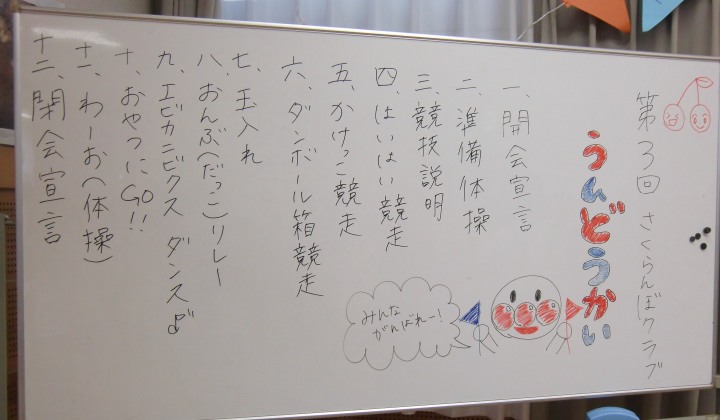 第3回 さくらんぼクラブ
うんどうかい
一、開会宣言
二、準備体操
三、競技説明
四、はいはい競走
五、かけっこ競走
六、ダンボール箱競走
七、玉入れ
八、おんぶ(だっこ)リレー
九、エビカニビクス ダンス♪
十、おやつにGO!!
十一、わーお(体操)
十二、閉会宣言
みんな
がんばれー!